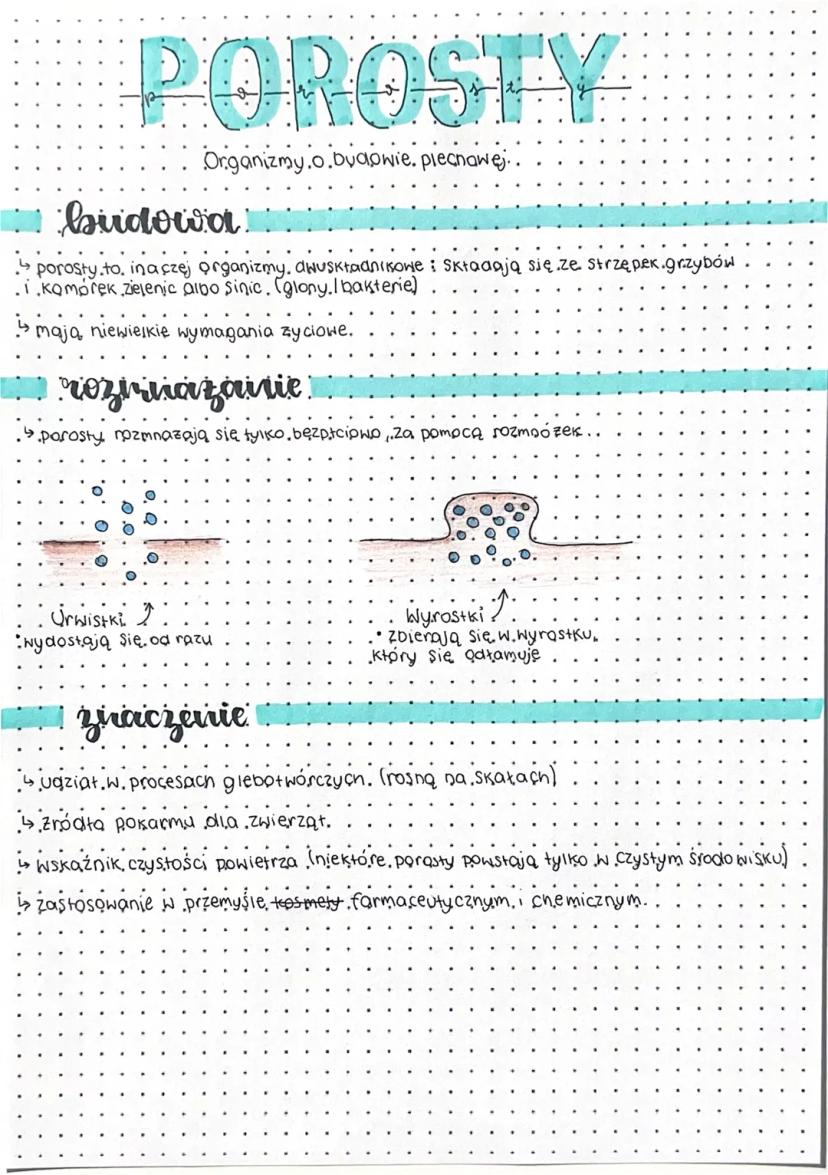 POROSTY
porosty
Organizmy o budowie plechowej.
budowa
↳ porosty to inaczej organizmy dwuskładnikowe : składają się ze strzępek grzybów
i komórek zielenic albo sinic (glony / bakterie)
↳ mają niewielkie wymagania życiowe.
rozmnażanie
↳ porosty rozmnażają się tylko bezpłciowo, za pomocą rozmnóżek.
Urwistki
• wydostają się od razu
Wyrostki
• zbierają się w wyrostku,
który się odłamuje
znaczenie
↳ udział w procesach glebotwórczych (rosną na skałach)
↳ źródło pokarmu dla zwierząt.
↳ wskaźnik czystości powietrza (niektóre porosty powstają tylko w czystym środowisku)
↳ zastosowanie w przemyśle kosmety farmaceutycznym i chemicznym.